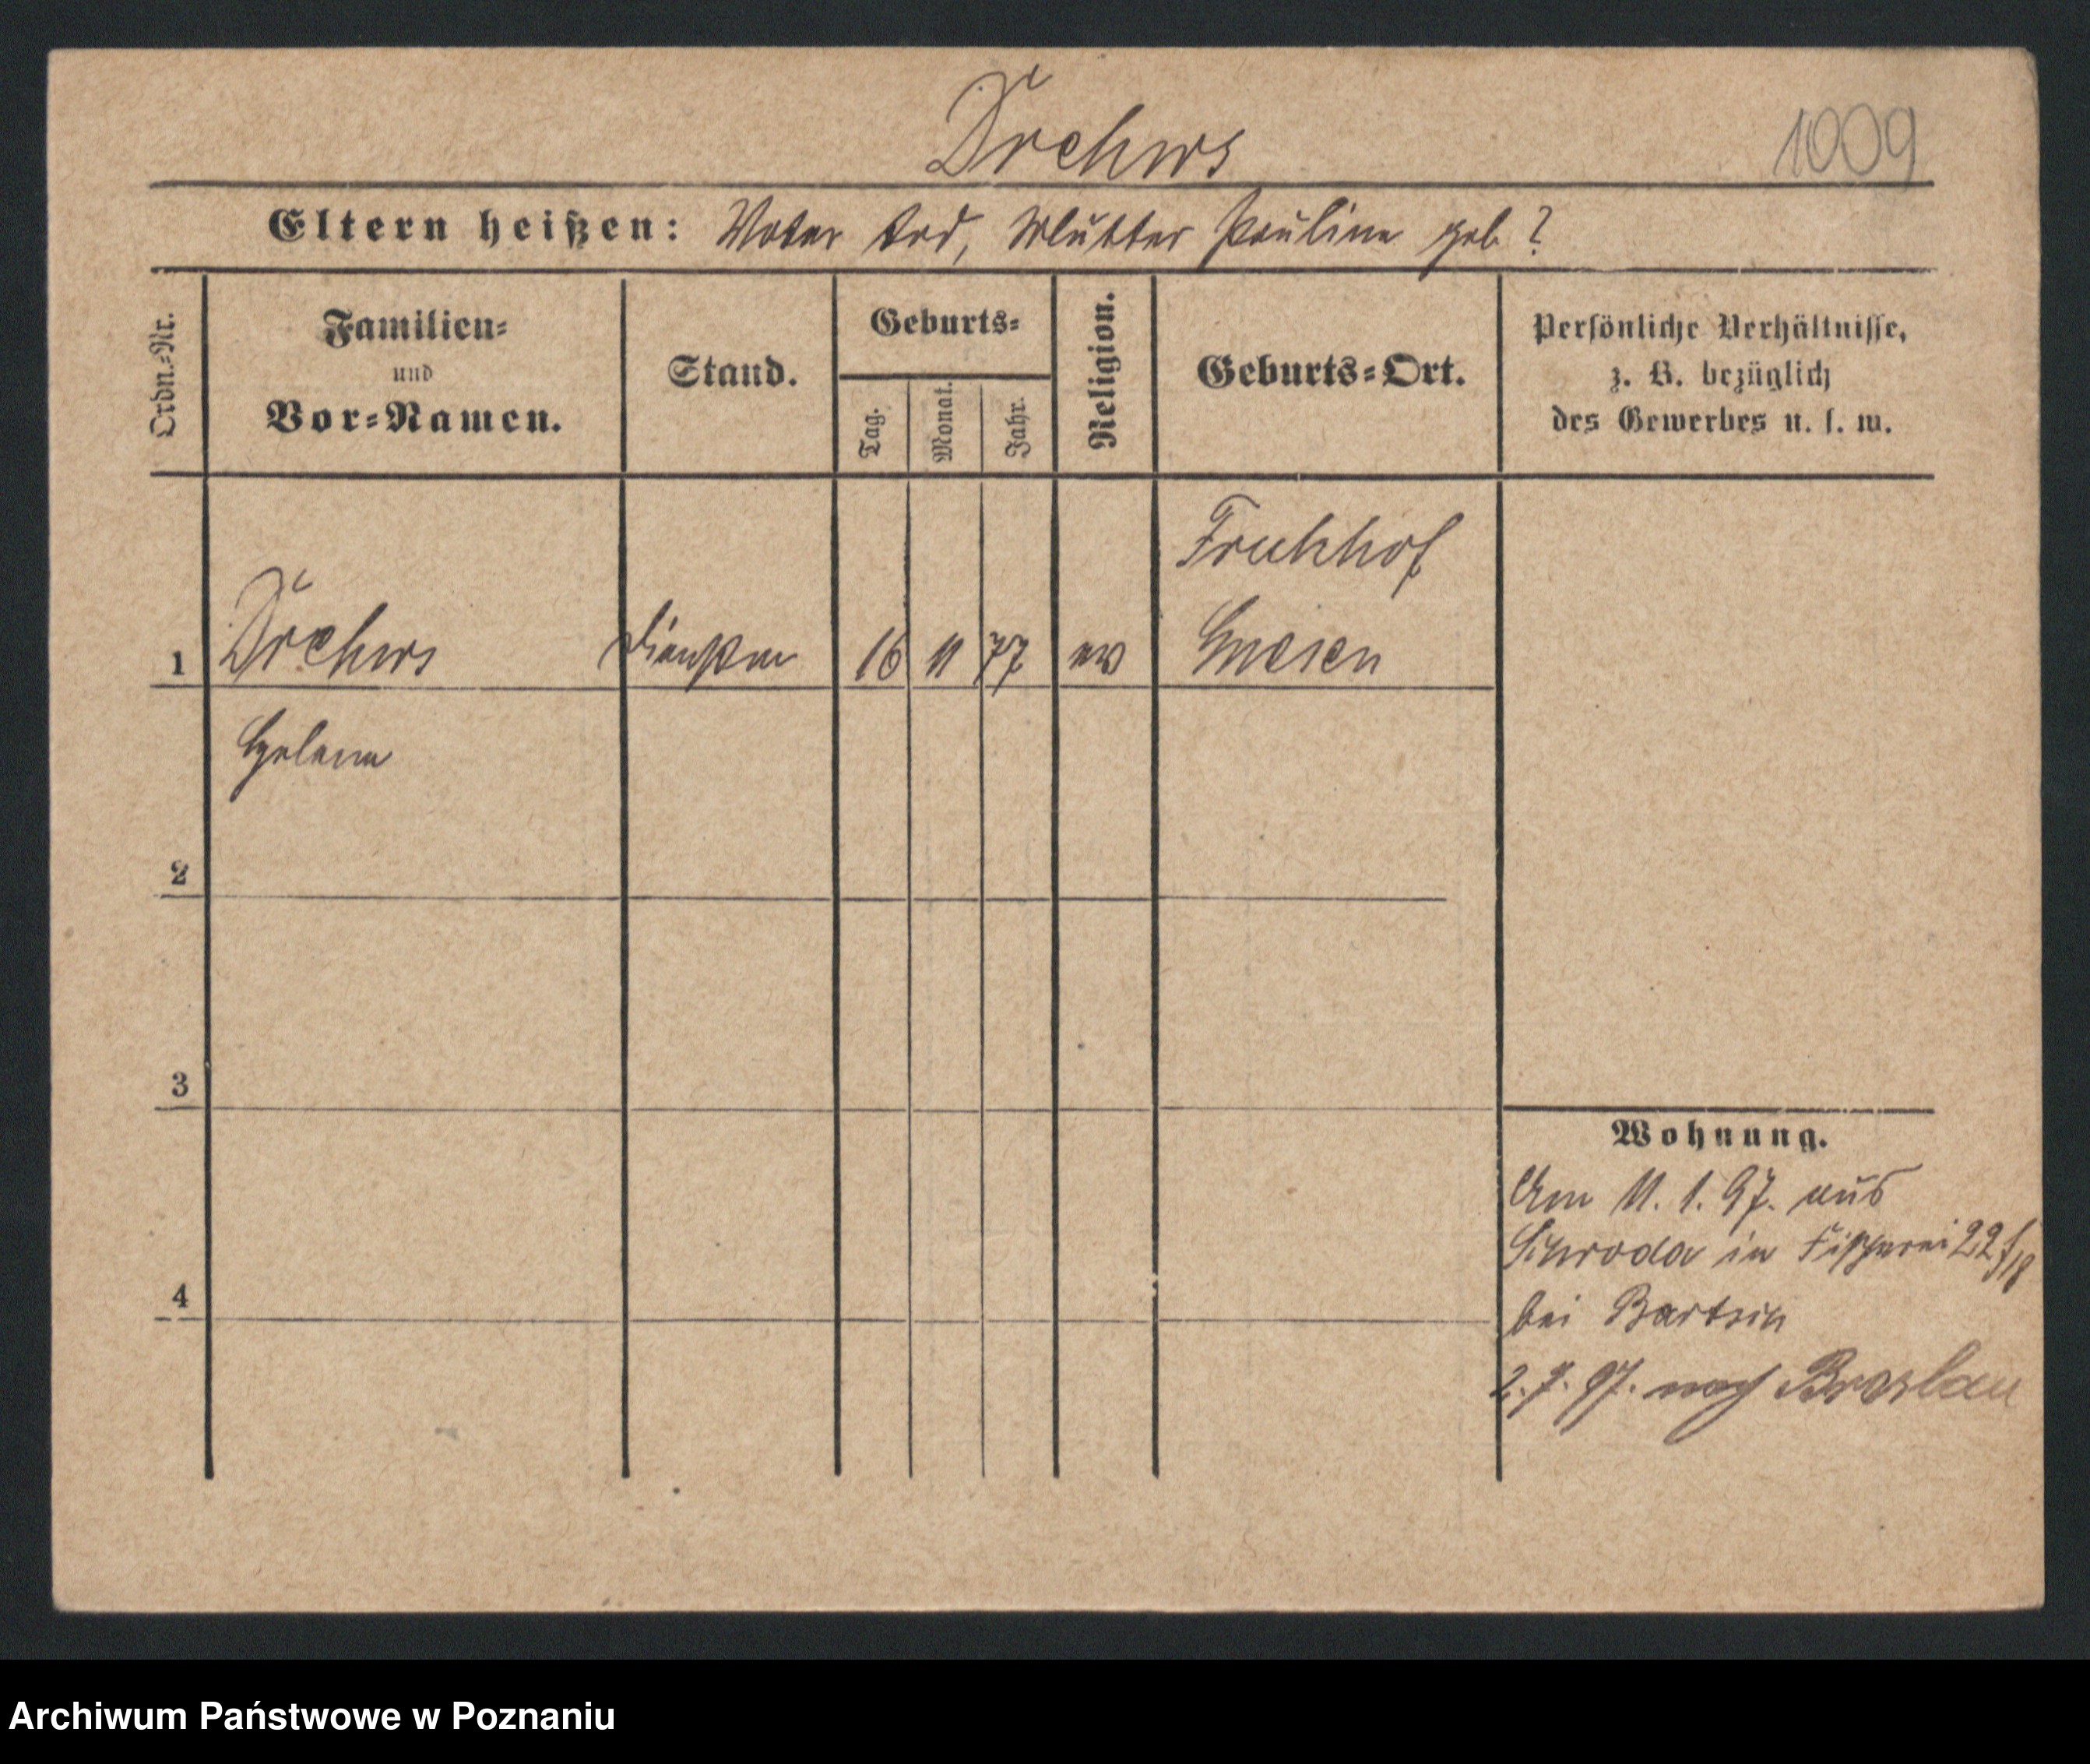 Drehws
1009
Eltern heißen: Vater tod, Mutter Pauline geb ?
Ordn.-Nr.
Familien-
und
Vor-Namen.
Stand.
Geburts-
Tag.
Monat.
Jahr.
Religion.
Geburts-Ort.
Persönliche Verhältnisse,
z. B. bezüglich
des Gewerbes u. s. w.
Fruhhof
1 Drehws 16 11 77 ev Gnesen
Helene
2
3
4
Wohnung.
Am 11. 1. 97. aus
Schroda in Fischerei 22
bei Bartsch
2. 7. 97. nach Breslau
Archiwum Państwowe w Poznaniu